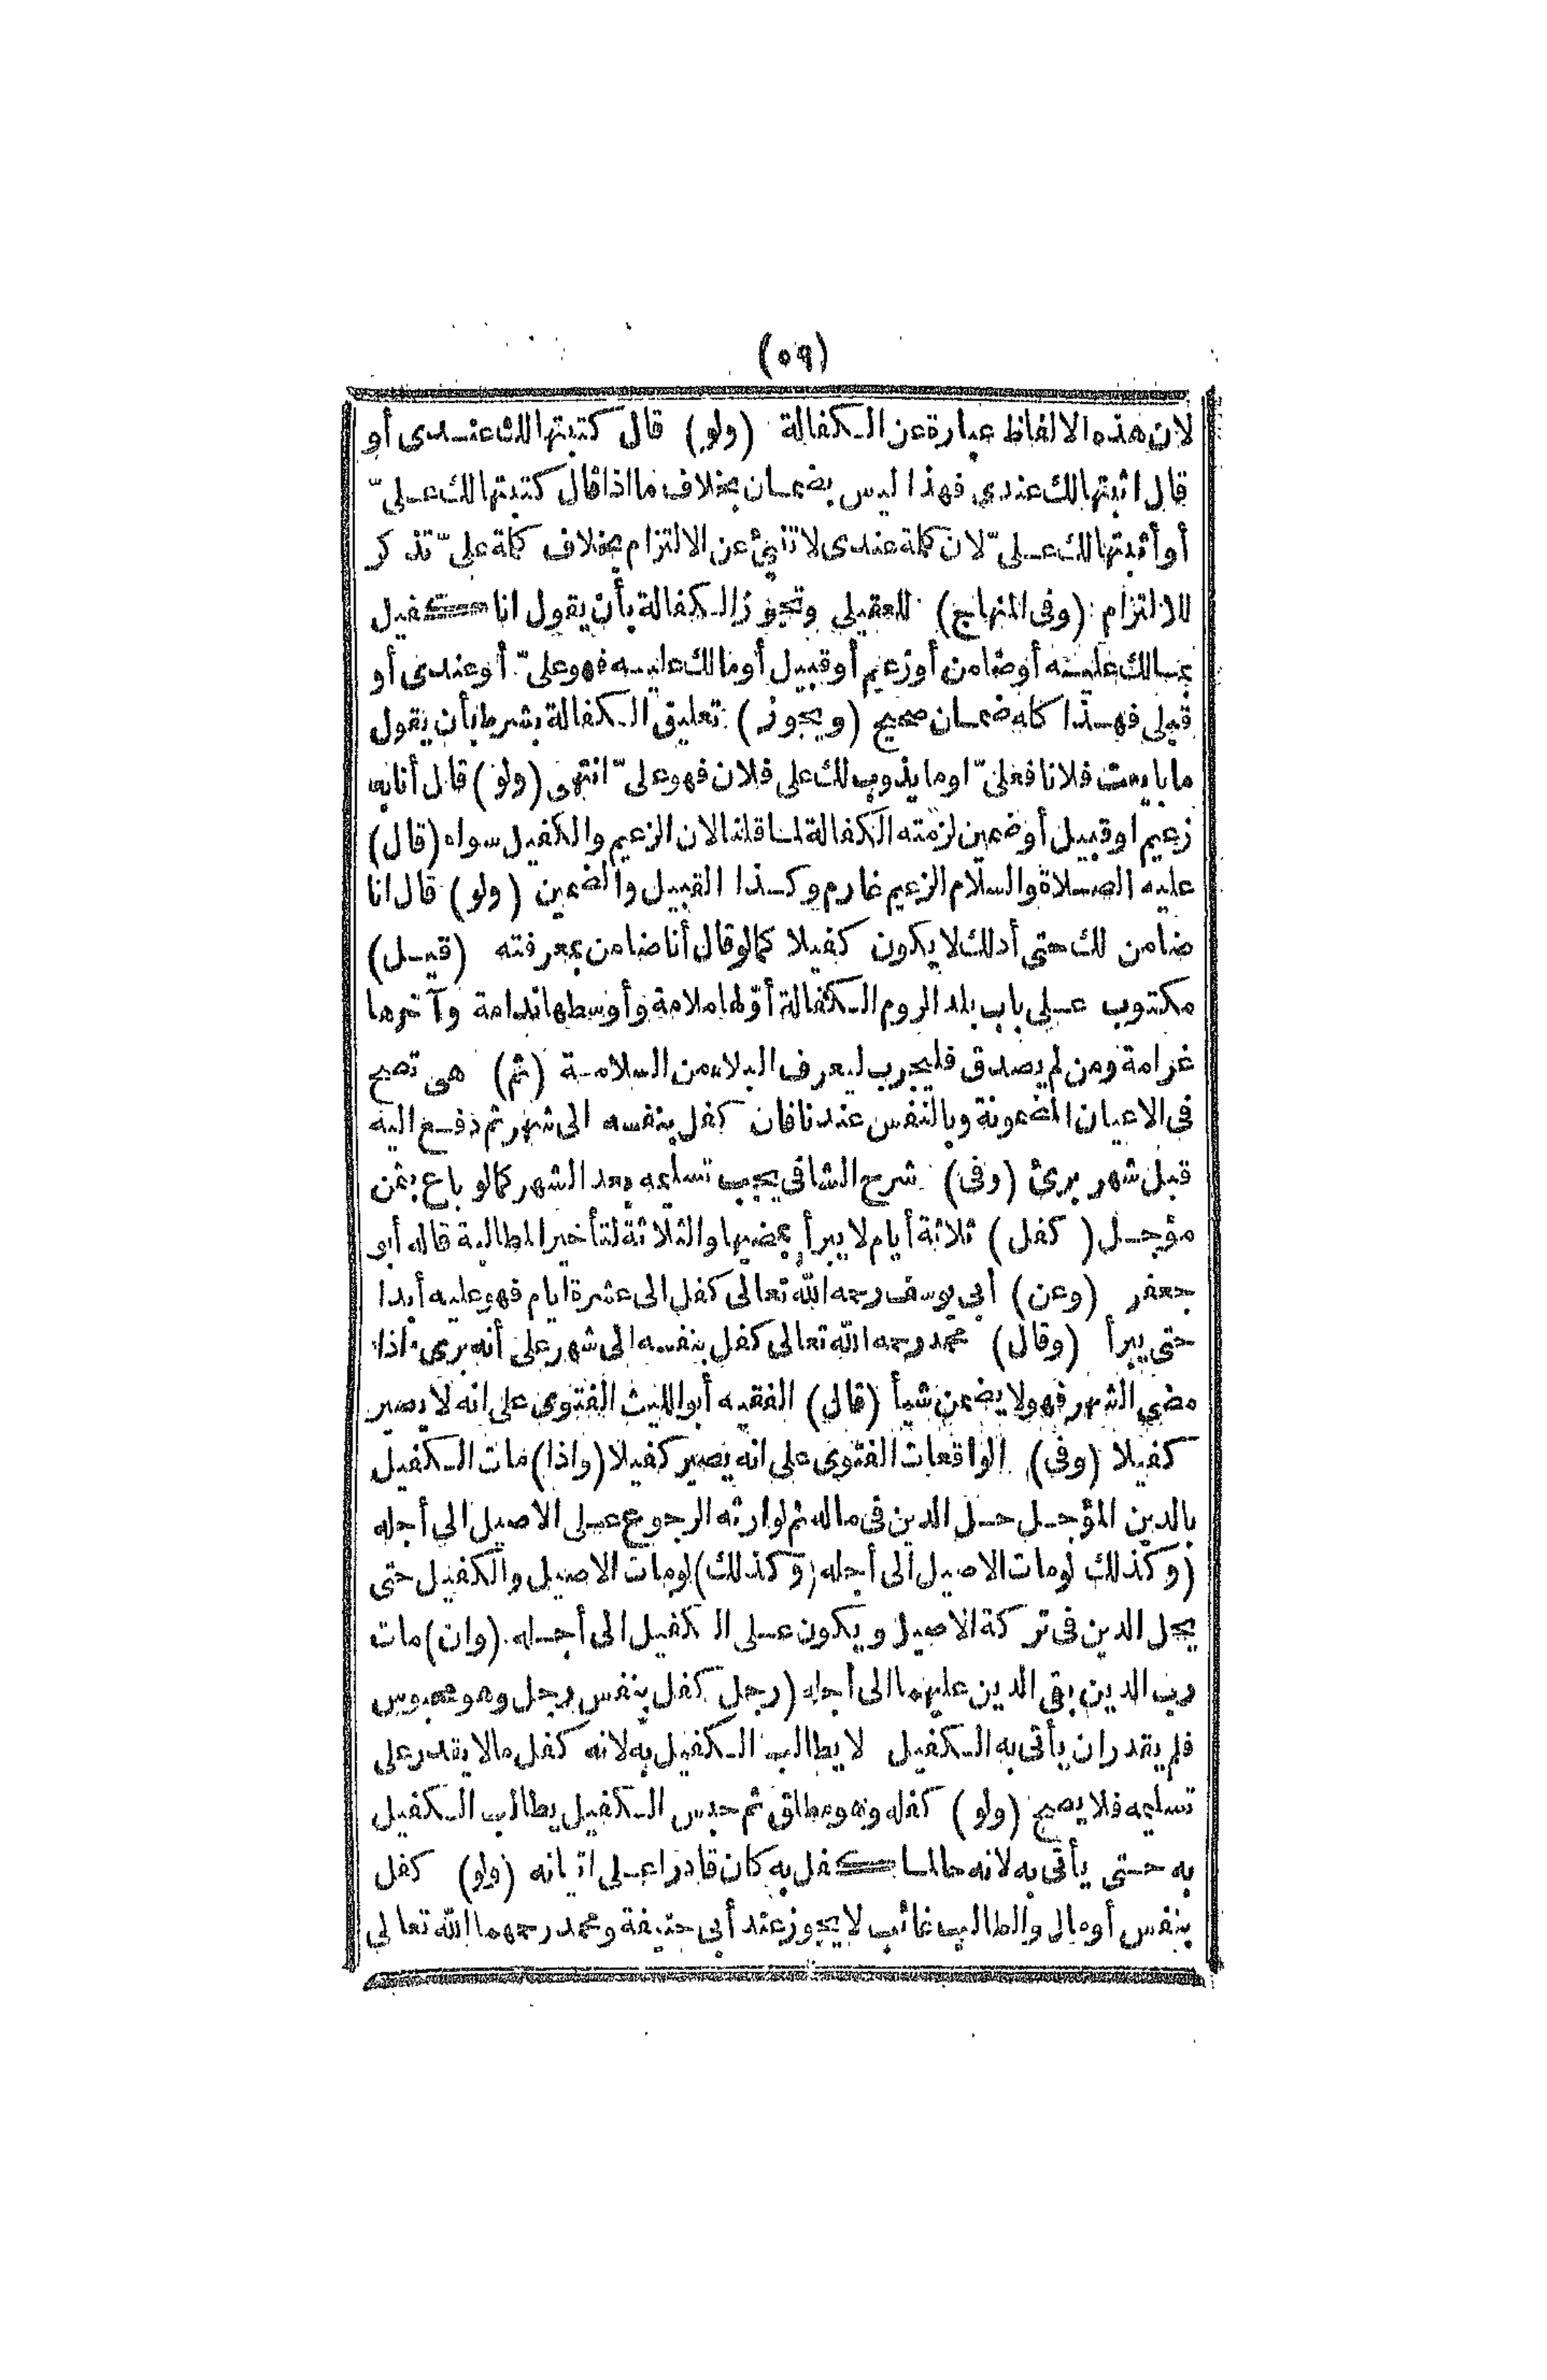 (٥٩)
لان هذه الالفاظ عبارة عن الكفالة (ولو) قال كتبتها لك عندى أو
قال اثبتها لك عندي فهذا ليس بضمان بخلاف ما اذا قال كتبتها لك علىّ
أو أثبتها لك علىّ لان كلمة عندى لا تنبئ عن الالتزام بخلاف كلمة علىّ تذكر
للالتزام (وفى المنهاج) للعقيلي وتجوز الكفالة بأن يقول انا كفيل
بمالك عليه أو ضامن أو زعيم أو قبيل أو مالك عليه فهو علىّ أو عندى أو
قبلى فهذا كله ضمان صحيح (ويجوز) تعليق الكفالة بشرط بأن يقول
ما بايعت فلانا فعلىّ او ما يذوب لك على فلان فهو علىّ انتهى (ولو) قال أنا به
زعيم او قبيل أو ضمين لزمته الكفالة لما قلنا لان الزعيم والكفيل سواء (قال)
عليه الصلاة والسلام الزعيم غارم وكذا القبيل والضمين (ولو) قال انا
ضامن لك حتى أدلك لا يكون كفيلا كما لو قال أنا ضامن بمعرفته (قيل)
مكتوب على باب بلد الروم الكفالة أوّلها ملامة وأوسطها ندامة وآخرها
غرامة ومن لم يصدق فليجرب ليعرف البلاء من السلامة (ثم) هى تصح
فى الاعيان المضمونة وبالنفس عندنا فان كفل بنفسه الى شهر ثم دفع اليه
قبل شهر برئ (وفى) شرح الشافى يجب تسليمه بعد الشهر كما لو باع بثمن
مؤجل (كفل) ثلاثة أيام لا يبرأ بمضيها والثلاثة لتأخير المطالبة قاله أبو
جعفر (وعن) أبى يوسف رحمه الله تعالى كفل الى عشرة ايام فهو عليه أبدا
حتى يبرأ (وقال) محمد رحمه الله تعالى كفل بنفسه الى شهر على أنه برىء اذا
مضى الشهر فهو لا يضمن شيأ (قال) الفقيه أبو الليث الفتوى على انه لا يصير
كفيلا (وفى) الواقعات الفتوى على انه يصير كفيلا (واذا) مات الكفيل
بالدين المؤجل حل الدين فى ماله ثم لوارثه الرجوع على الاصيل الى أجله
(وكذلك لو مات الاصيل الى أجله (وكذلك) لو مات الاصيل والكفيل حتى
يحل الدين فى تركة الاصيل ويكون على الكفيل الى أجله (وان) مات
رب الدين بقى الدين عليهما الى أجله (رجل كفل بنفس رجل وهو محبوس
فلم يقدر ان يأتى به الكفيل لا يطالب الكفيل به لانه كفل مالا يقدر على
تسليمه فلا يصح (ولو) كفله وهو مطلق ثم حبس الكفيل يطالب الكفيل
به حتى يأتى به لانه حالما كفل به كان قادرا على اتيانه (ولو) كفل
بنفس أو مال والطالب غائب لا يجوز عند أبى حنيفة ومحمد رحمهما الله تعالى